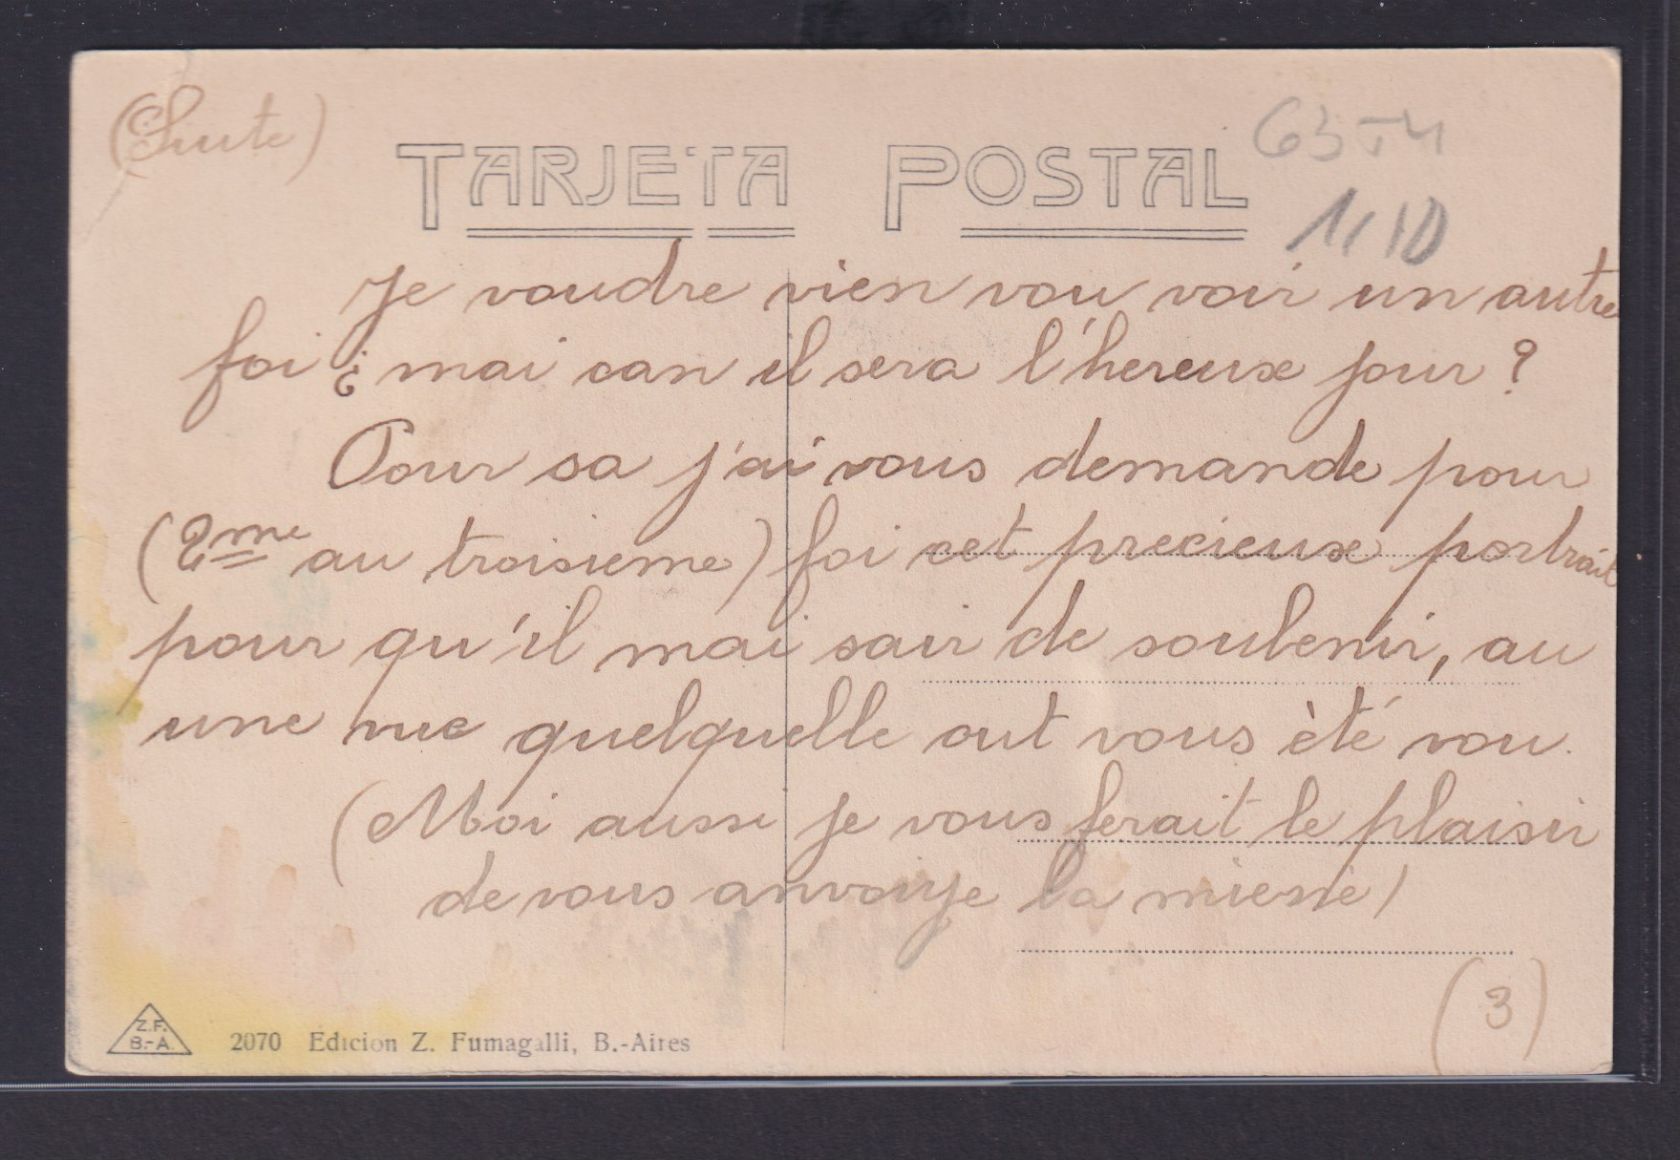 (Suite)
TARJETA POSTAL
6354
1/10
Je voudre vien vou voir un autre
foi ¿ mai can il sera l'hereuxe jour ?
Pour sa j'ai vous demande pour
(2me au troisieme) foi cet precieuxe portrait
pour qu'il mai sair de soubenir, au
une nuc quelquelle out vous èté vou.
(Moi aussi je vous ferait le plaisir
de vous anvoije la miene)
(3)
Z.F.
B.-A.
2070 Edicion Z. Fumagalli, B.-Aires